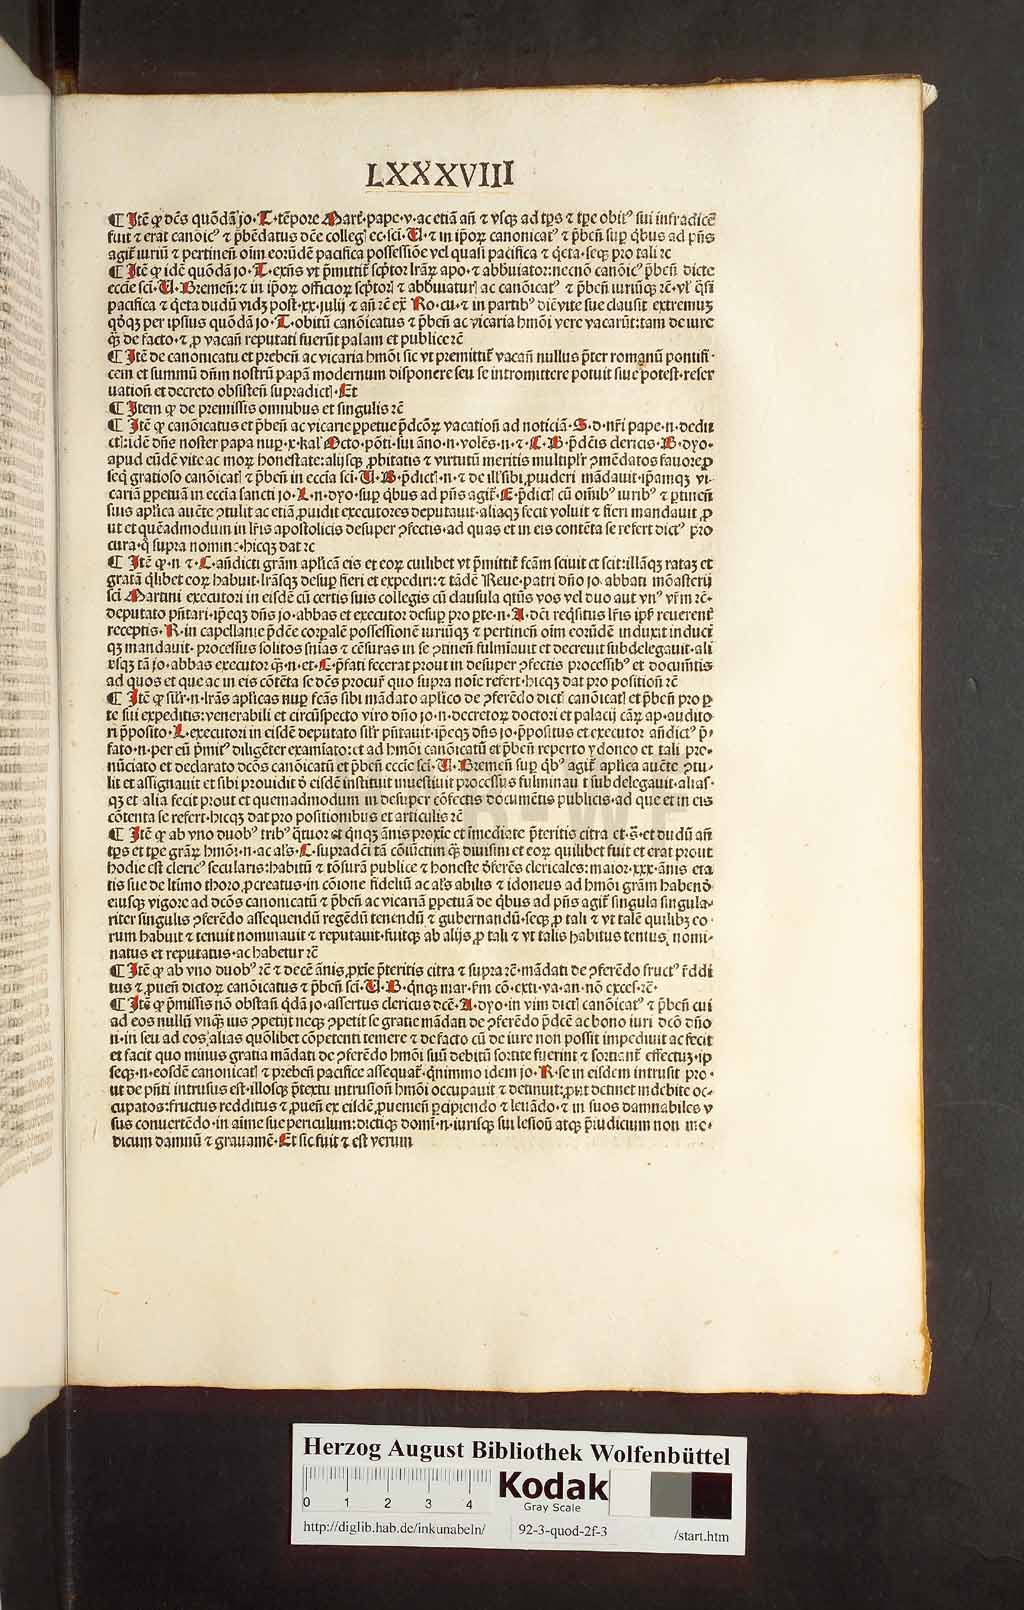 LXXXVIII
¶ Itē ꝙ dc̄s quōdā jo· T·tēpore Mart̄·pape·v·ac etiā añ ⁊ vsqꝫ ad tp̄s ⁊ tp̄e obitꝰ sui infradicē
fuit ⁊ erat canōicꝰ ⁊ p̄bēdatus dc̄e colleḡ ec·sci·U·⁊ in ip̄oꝝ canonicatꝰ ⁊ p̄beñ suꝑ q̄bus ad pñs
agit̄ iuriū ⁊ pertineñ oīm eorūdē pacifica possessiōe vel quasi pacifica ⁊ q̄eta·seqꝫ pro tali ⁊c
¶ Itē ꝙ idē quōdā jo·T·exñs vt p̄mittit̄ sc̄ptor l̄raꝝ apo·⁊ abbuiator:necnō canōicꝰ p̄beñ dicte
eccl̄ie sci·U·Bremeñ:⁊ in ip̄oꝝ officioꝝ sc̄ptorꝭ ⁊ abbuiaturꝭ ac canōicatꝰ ⁊ p̄beñ iuriūqꝫ ⁊c̄·vl̓ q̄si
pacifica ⁊ q̄eta dudū vidꝫ post·xx·julij ⁊ añ ⁊c ex̄ Ro·cu·⁊ in partibꝰ diē vite sue clausit extremuꝫ
qd̓qꝫ per ipsius quōdā jo·T·obitū canōicatus ⁊ p̄beñ ac vicaria hmōi vere vacarūt:tam de iure
q̄ꝫ de facto·⁊ ꝓ vacañ reputati fuerūt palam et publice ⁊c̄
¶ Itē de canonicatu et prebeñ ac vicaria hmōi sic vt premittit̄ vacañ nullus p̄ter romanū pontifi·
cem et summū dñm nostrū papā modernum disponere seu se intromittere potuit siue potest·reser
uatioñ et decreto obsisteñ supradictꝭ·Et
¶ Item ꝙ de premissis omnibus et singulis ⁊c̄
¶ Itē ꝙ canōicatus et p̄beñ ac vicarie ꝑpetue p̄dcōꝝ vacatioñ ad noticiā·S·d·nr̄i pape·n·dedu
ctꝭ:idē dñs noster papa nuꝑ·x·kal̓ Octo·pōti·sui āno·n·volēs·n·⁊·C·B·p̄dc̄is clericis·B·dyo·
apud eūdē vite ac moꝝ honestate:alijsqꝫ ꝓbitatis ⁊ virtutū meritis multipl̓r ꝯmēdatos fauore ꝓ
seq̄ gratioso canōicatꝭ ⁊ p̄beñ in eccl̄ia sci·U·B·p̄dictꝭ·n·⁊ de ill̓sibi ꝓuideri mādauit·ip̄amqꝫ vi·
cariā ꝑpetuā in eccl̄ia sancti jo·L·n·dyo·suꝑ q̄bus ad pñs agit̄·E·p̄dictꝭ cū om̄ibꝰ iuribꝰ ⁊ ꝑtineñ
suis apl̄ica auc̄te ꝯtulit ac etiā ꝓuidit executores deputauit·aliaqꝫ fecit voluit ⁊ fieri mandauit ꝓ
ut et quēadmodum in l̄ris apostolicis desuper ꝯfectis·ad quas et in eis contēta se refert dictꝰ pro
cura·q̄ supra nomine·hicqꝫ dat ⁊c
¶ Itē ꝙ·n·⁊·C·añdicti grām apl̄icā eis et eoꝝ cuilibet vt p̄mittit̄ fcām sciuit et scit:illāqꝫ rataꝫ et
gratā q̄libet eoꝝ habuit·l̄rāsqꝫ desuꝑ fieri et expediri:⁊ tādē Reue·patri dño jo·abbati mōasterij
sci Martini executori in eisdē cū certis suis collegis cū clausula qtn̄s vos vel duo aut vnꝰ vr̄m ⁊c̄·
deputato pñtari·ip̄eqꝫ dñs jo·abbas et executor desuꝑ pro ꝑte·n·A·dc̄i req̄situs l̄ris ip̄ꝭ reuerent̄
receptis·R·in capellanie p̄dc̄e corꝑalē possessionē iuriūqꝫ ⁊ pertineñ oīm eorūdē induxit induci
qꝫ mandauit·processus solitos snias ⁊ cēsuras in se ꝯtineñ fulmīauit et decreuit subdelegauit·ali
vsqꝫ tā jo·abbas executor q̄ꝫ·n·et·C·p̄fati fecerat prout in desuper ꝯfectis processibꝰ et documētis
ad quos et que ac in eis cōtēta se dc̄s procur̄ quo supra noīe refert·hicqꝫ dat pro positioñ ⁊c̄
¶ Itē ꝙ sil̓r·n·l̄rās apl̄icas nuꝑ fcās sibi mādato apl̄ico de ꝯferēdo dictꝭ canōicatꝭ et p̄beñ pro ꝑ
te sui expeditis:venerabili et circūspecto viro dño jo·n·decretoꝝ doctori et palacij cāꝝ ap·audito
ri p̄posito·L·executori in eisdē deputato sil̓r pñtauit·ip̄eqꝫ dñs jo·p̄positus et executor añdictꝰ p̄·
fato·n·per eū p̄mitꝰ diligēter examīato:et ad hmōi canōicatū et p̄beñ reperto ydoneo et tali pro·
nūciato et declarato dc̄os canōicatū et p̄beñ eccl̄ie sci·U·Bremeñ suꝑ q̄bꝰ agit̄ apl̄ica auc̄te ꝯtu·
lit et assignauit et sibi prouidit d̓ eisdē instituit inuestiuit processus fulminauit subdelegauit·alias·
qꝫ et alia fecit prout et quemadmodum in desuper cōfectis documētis publicis·ad que et in eis
cōtenta se refert·hicqꝫ dat pro positionibus et articulis ⁊c̄
¶ Itē ꝙ ab vno duobꝰ tribꝰ q̄tuor et qnqꝫ ānis proxīe et īmediate p̄teritis citra et·s̄·et dudū añ
tp̄s et tp̄e grāꝝ hmōi·n·ac al̓s·C·supradc̄i tā cōiūctim q̄ꝫ diuisim et eoꝝ quilibet fuit et erat prout
hodie est clericꝰ secularis:habitū ⁊ tōsurā publice ⁊ honeste d̓ferēs clericales:maior·xxx·ānis eta
tis sue de l̄timo thoro ꝓcreatus·in cōione fideliū ac al̓s abilis ⁊ idoneus ad hmōi grām habend̓
eiusqꝫ vigore ad dc̄os canonicatū ⁊ p̄beñ ac vicariā ꝑpetuā de q̄bus ad pñs agit̄ singula singula·
riter singulis ꝯferēdo assequendū regēdū tenendū ⁊ gubernandū·seqꝫ ꝓ tali ⁊ vt talē quilibꝫ eo·
rum habuit ⁊ tenuit nominauit ⁊ reputauit·fuitqꝫ ab alijs ꝓ tali ⁊ vt talis habitus tentus nomi·
natus et reputatus·ac habetur ⁊c̄
¶ Itē ꝙ ab vno duobꝰ ⁊c̄ ⁊ decē ānis ꝓxīe p̄teritis citra ⁊ supra ⁊c̄·mādati de ꝯferēdo fructꝰ r̄ddi
tus ⁊ ꝓueñ dictoꝝ canōicatus ⁊ p̄beñ sci·U·B·q̄nqꝫ mar·fm̄ cō·exti·va·an·nō exces·⁊c̄·
¶ Itē ꝙ p̄missis nō obstañ q̄dā jo·assertus clericus dc̄ē·A·dyo·in vim dictꝭ canōicatꝰ ⁊ p̄beñ cui
ad eos nullū vnq̄ꝫ ius ꝯpetijt necqꝫ ꝯpetit se gratie mādati de ꝯferēdo p̄dc̄e ac bono iuri dc̄o dño
n·in seu ad eos alias quōlibet cōpetenti temere ⁊ de facto cū de iure non possit impediuit ac fecit
et facit quo minus gratia mādati de ꝯferēdo hmōi suū debitū sortite fuerint ⁊ sortiant̄ effectuꝫ·ip
seqꝫ·n·eosdē canonicatꝭ ⁊ prebeñ pacifice assequat̄·q̄nimmo idem jo·R·se in eisdem intrusit pro·
ut de pñti intrusus est·illosqꝫ p̄textu intrusioñ hmōi occupauit ⁊ detinuit:ꝓut detinet indebite oc·
cupatos:fructus redditus ⁊ ꝓueñ ex eisdē ꝓuenieñ ꝑcipiendo ⁊ leuādo·⁊ in suos damnabiles v
sus conuertēdo·in aīme sue periculum:dictiqꝫ domī·n·iurisqꝫ sui lesioñ atqꝫ p̄iudicium non mo·
dicum damnū ⁊ grauamē·Et sic fuit ⁊ est verum
Herzog August Bibliothek Wolfenbüttel
0 1 2 3 4
Kodak
Gray Scale
http://diglib.hab.de/inkunabeln/ 92-3-quod-2f-3 /start.htm